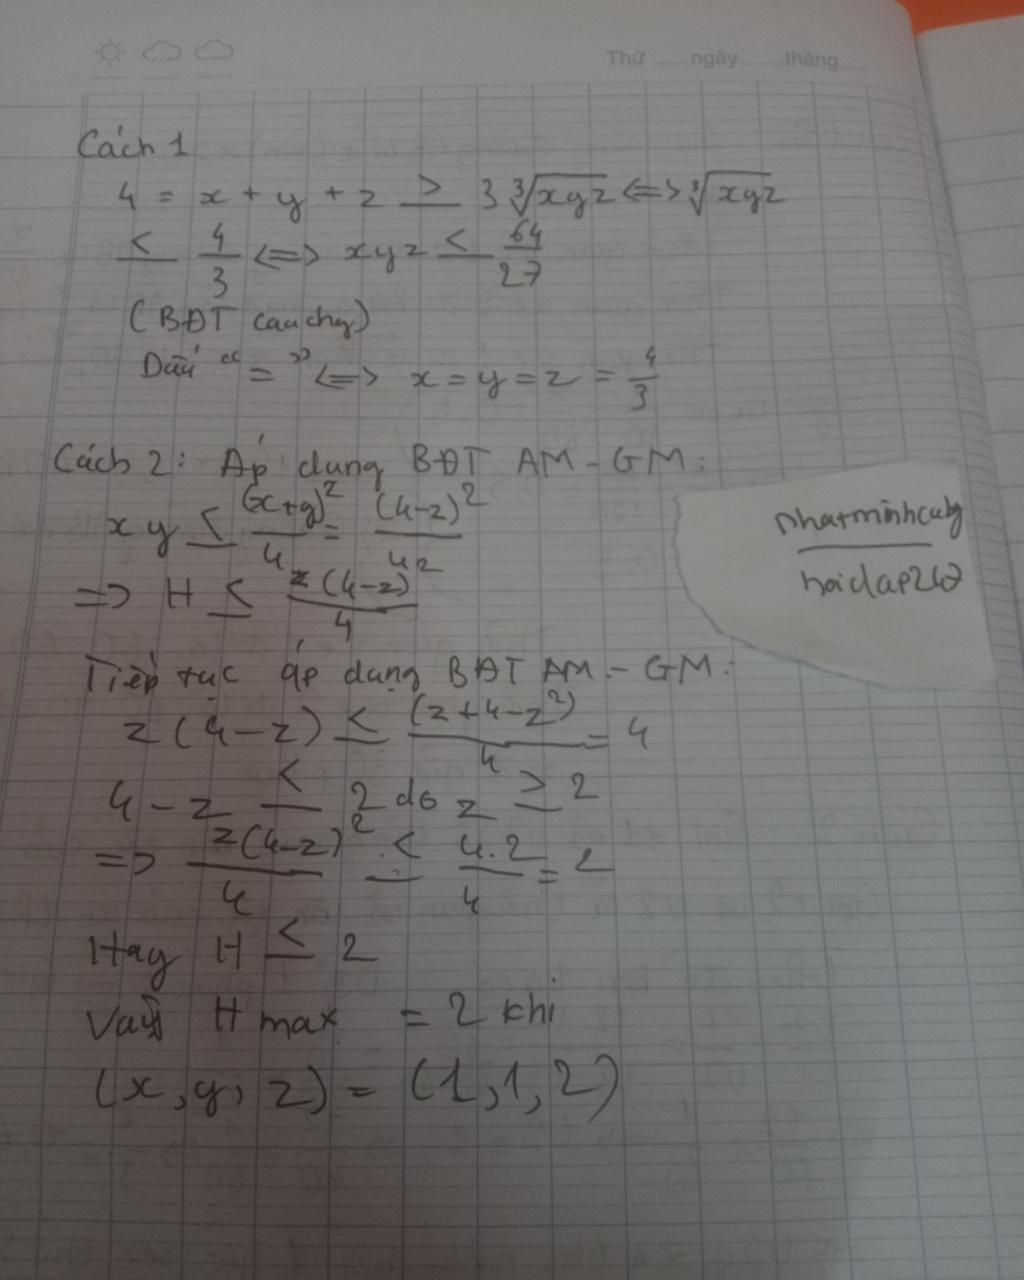 Thứ ngày tháng
Cách 1
4 = x + y + z ≥ 3∛xyz <=> ∛xyz
≤ 4/3 <=> xyz ≤ 64/27
(BĐT cauchy)
Dấu "=" <=> x = y = z = 4/3
Cách 2: Áp dung BĐT AM-GM:
xy ≤ (x+y)²/4 = (4-z)²/4
=> H ≤ z(4-z)²/4
Tiếp tục áp dụng BĐT AM-GM:
z(4-z) ≤ (z+4-z²)/4 = 4
4-z ≤ 2 do z ≥ 2
=> z(4-z)²/4 ≤ 4.2/4 = 2
Hay H ≤ 2
Vậy H max = 2 khi
(x,y,z) = (1,1,2)
nhatminhcuty
hoidap247